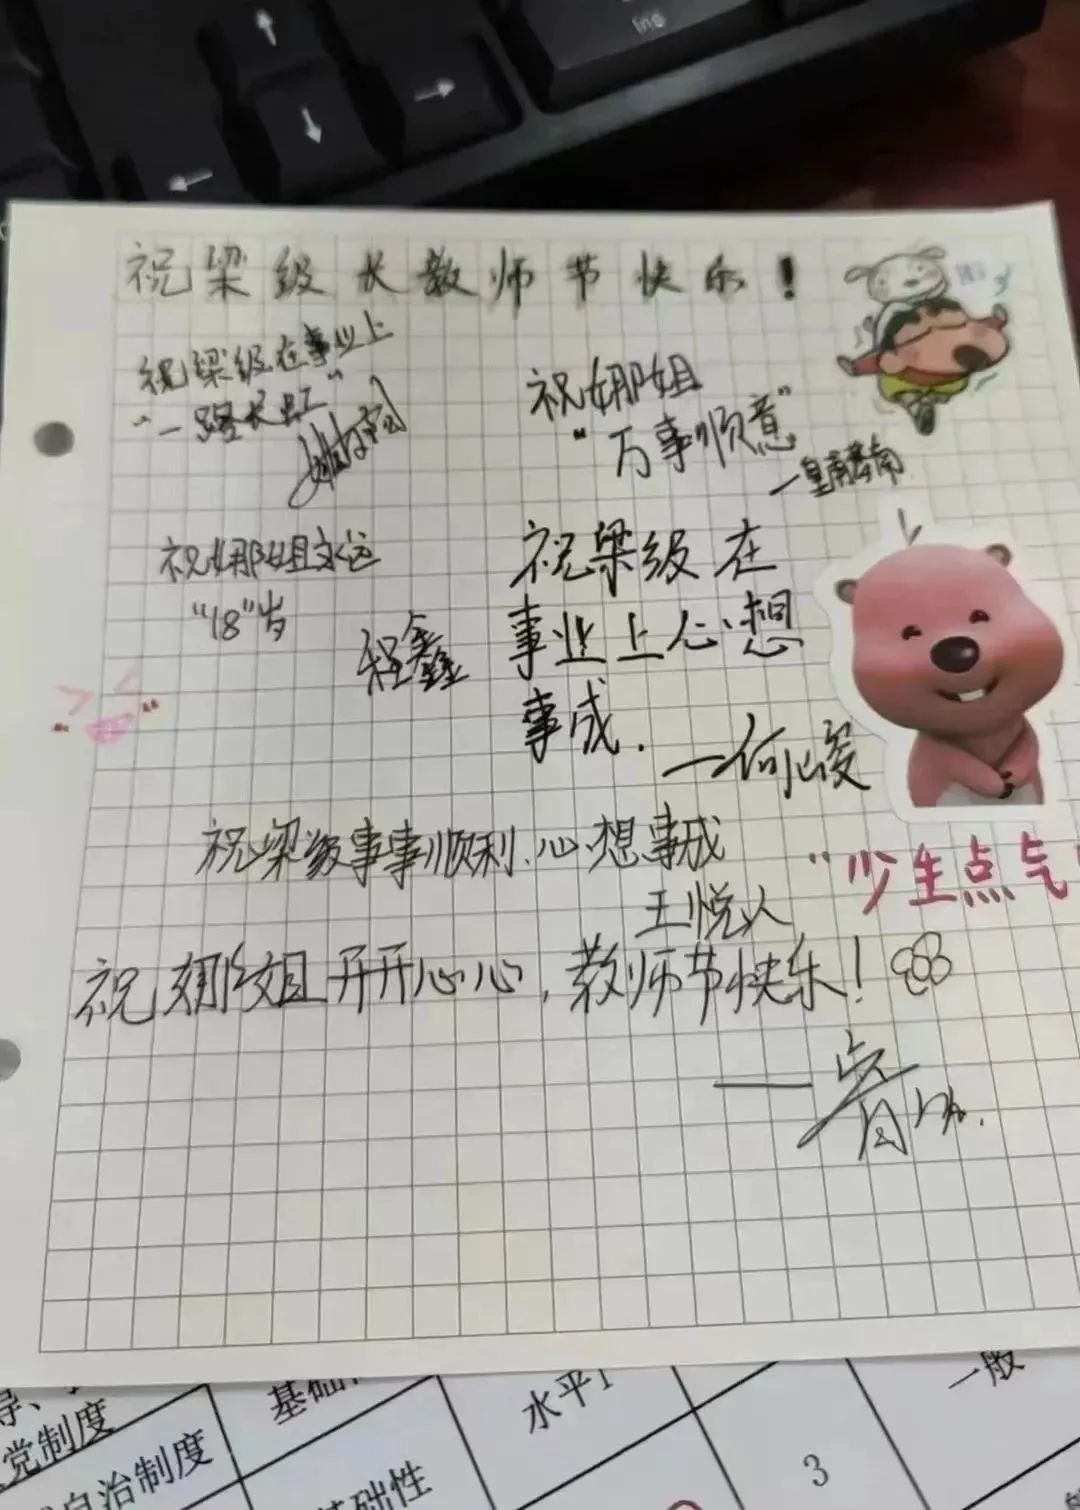 Ins
祝梁级长教师节快乐！
祝梁级在事业上
“一路长虹”
祝娜姐
“万事顺意”
祝娜姐永远
“18”岁
程鑫
祝梁级在
事业上心想
事成.
祝梁级事事顺利.心想事成
王悦人
“少生点气
祝娜姐开开心心,教师节快乐！
党制度
自治制度
基础
础性
水平1
3
一般